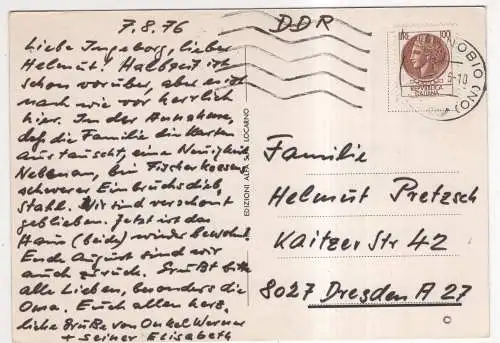 7.8.76
Liebe Ingeborg, lieber
Helmut! Halbzeit ist
schon vorüber, aber es ist
nach wie vor herrlich
hier. In der Annahme,
daß die Familie die Karten
austauscht, eine Neuigkeit:
Nebenan, bei Fischer
schwerer Einbruchsdieb-
stahl. Wir sind verschont
geblieben. Jetzt ist das
Haus (beide) wieder bewohnt.
Ende August sind wir
auch zurück. Grüßt bitte
alle Lieben, besonders die
Oma. Euch allen herz-
liche Grüße von Onkel Werner
+ seiner Elisabeth
EDIZIONI ALFA LOCARNO
DDR
LIRE 100
NOBIO (NO)
Familie
Helmut Pretzsch
Kaitzer Str 42
8027 Dresden A 27